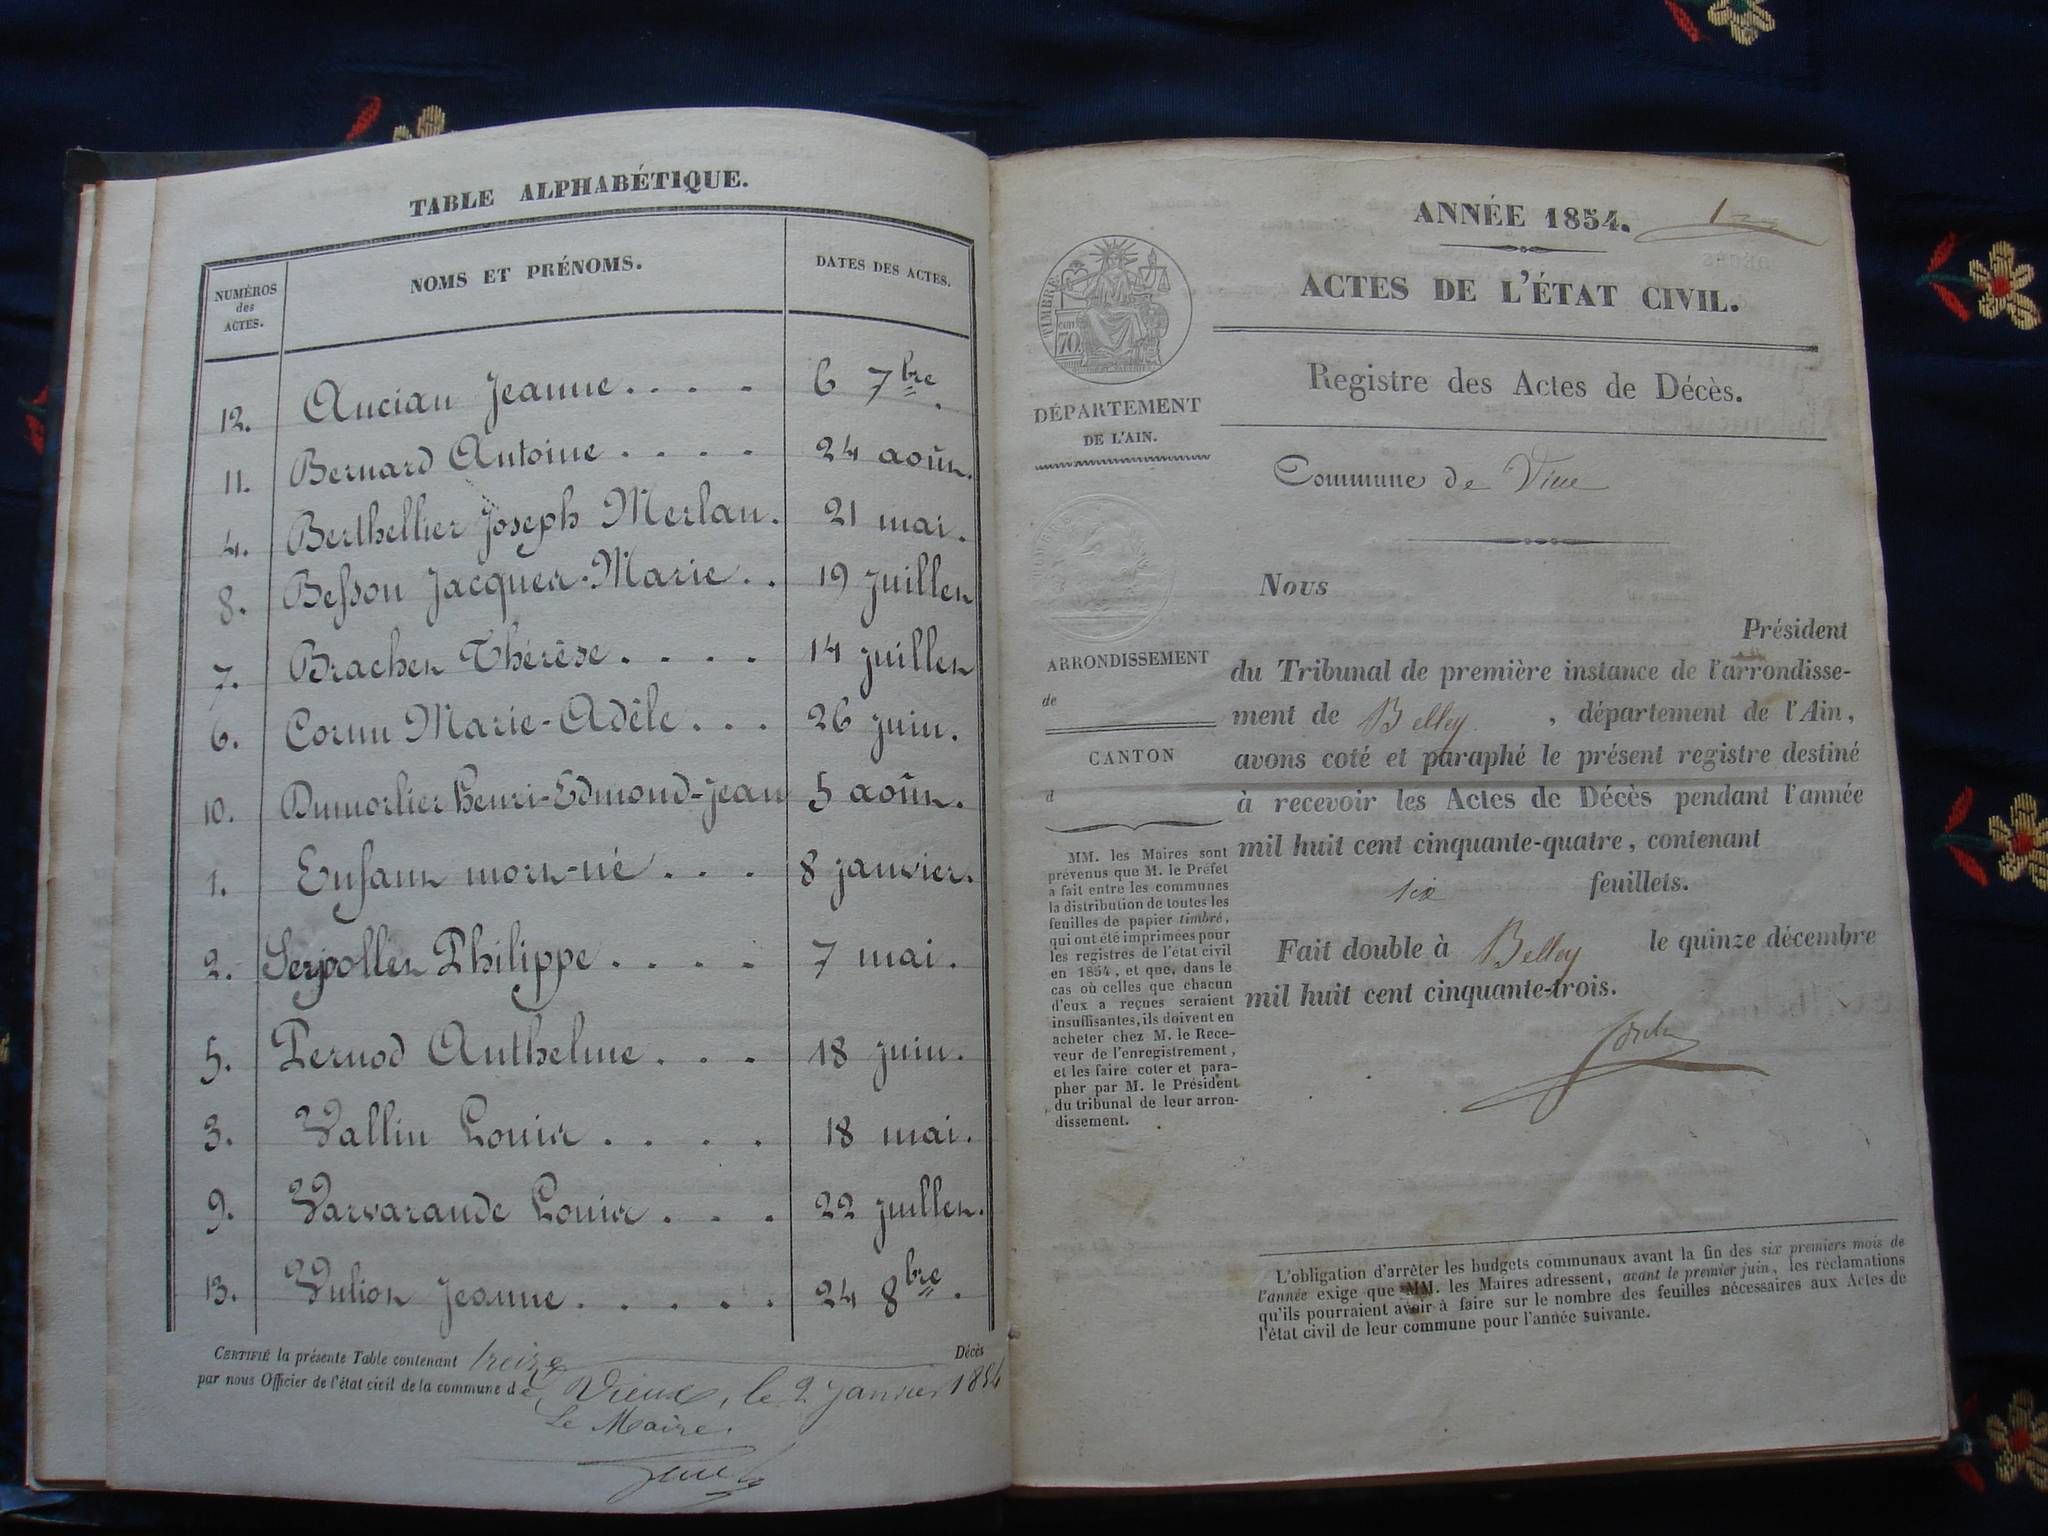 TABLE ALPHABÉTIQUE.
NUMÉROS des ACTES.
NOMS ET PRÉNOMS.
DATES DES ACTES.
12. Ancian Jeanne.... 6 7bre.
11. Bernard Antoine.... 24 août.
4. Berthellier Joseph Merlan. 21 mai.
8. Besson Jacques-Marie.. 19 juillet
7. Brachet Thérèse.... 14 juillet
6. Cornu Marie-Adèle... 26 juin.
10. Dumorlier Henri-Edmond-Jean 5 août.
1. Enfant mort-né... 8 janvier.
2. Serpollet Philippe.... 7 mai.
5. Pernod Anthelme... 18 juin.
3. Vallin Louis.... 18 mai.
9. Varvarande Louis... 22 juillet.
13. Vulion Jeanne..... 24 8bre.
CERTIFIÉ la présente Table contenant treize Décès
par nous Officier de l'état civil de la commune de Vieux, le 2 janvier 1854
Le Maire.
ANNÉE 1854.
1
ACTES DE L'ÉTAT CIVIL.
TIMBRE
70
Registre des Actes de Décès.
DÉPARTEMENT
DE L'AIN.
Commune de Vieu
Nous
Président
ARRONDISSEMENT
de
CANTON
d
du Tribunal de première instance de l'arrondisse-
ment de Belley, département de l'Ain,
avons coté et paraphé le présent registre destiné
à recevoir les Actes de Décès pendant l'année
mil huit cent cinquante-quatre, contenant
six feuillets.
Fait double à Belley le quinze décembre
mil huit cent cinquante-trois.
MM. les Maires sont
prévenus que M. le Préfet
a fait entre les communes
la distribution de toutes les
feuilles de papier timbré,
qui ont été imprimées pour
les registres de l'état civil
en 1854, et que, dans le
cas où celles que chacun
d'eux a reçues seraient
insuffisantes, ils doivent en
acheter chez M. le Rece-
veur de l'enregistrement,
et les faire coter et para-
pher par M. le Président
du tribunal de leur arron-
dissement.
L'obligation d'arrêter les budgets communaux avant la fin des six premiers mois de
l'année exige que MM. les Maires adressent, avant le premier juin, les réclamations
qu'ils pourraient avoir à faire sur le nombre des feuilles nécessaires aux Actes de
l'état civil de leur commune pour l'année suivante.